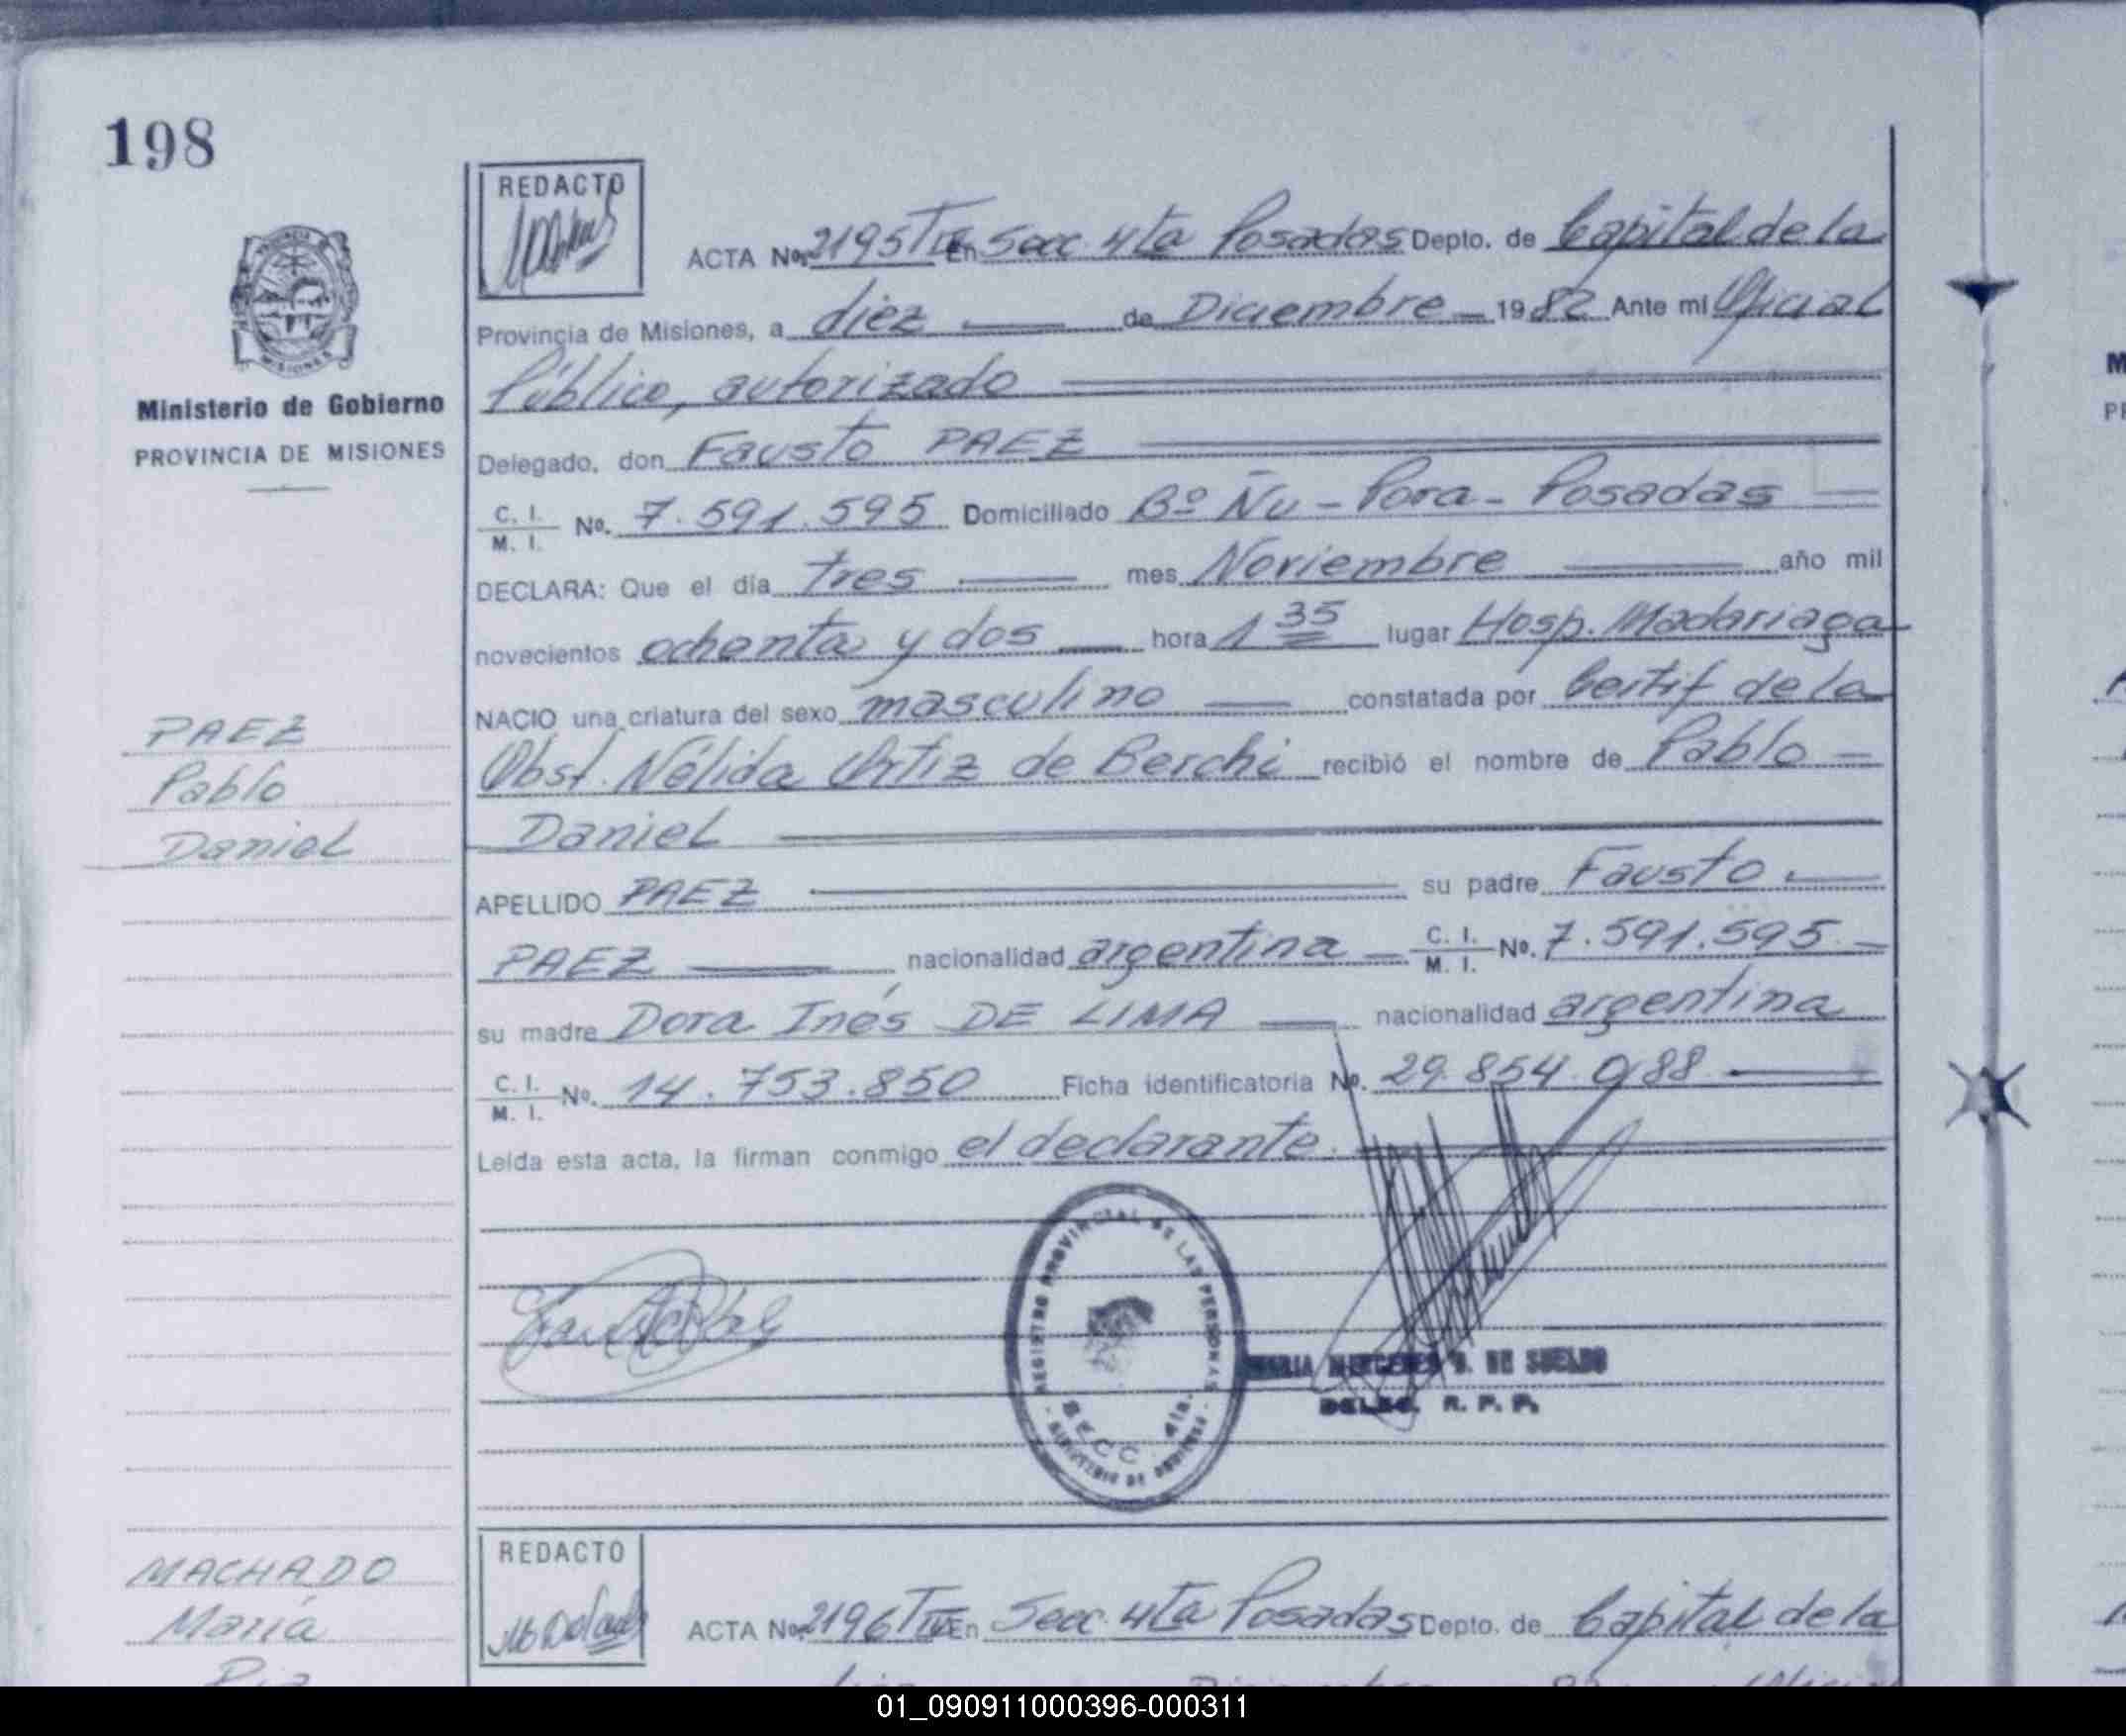 198
PROVINCIA DE
MISIONES
Ministerio de Gobierno
PROVINCIA DE MISIONES
PAEZ
Pablo
Daniel
REDACTO
ACTA No. 2195 T IV En Secc. 4ta Posadas Depto. de Capital de la
Provincia de Misiones, a diez de Diciembre 1982 Ante mi Oficial
Público, autorizado
Delegado, don Fausto PAEZ
C. I.
M. I. No. 7.591.595 Domiciliado Bº Ñu-Pora-Posadas
DECLARA: Que el día tres mes Noviembre año mil
novecientos ochenta y dos hora 1 35 lugar Hosp. Madariaga
NACIO una criatura del sexo masculino constatada por Certif de la
Obst. Nélida Ortiz de Berchi recibió el nombre de Pablo
Daniel
APELLIDO PAEZ su padre Fausto
PAEZ nacionalidad argentina C. I.
M. I. No. 7.591.595
su madre Dora Inés DE LIMA nacionalidad argentina
C. I.
M. I. No. 14.753.850 Ficha identificatoria No. 29.854.088
Leída esta acta, la firman conmigo el declarante.
REGISTRO PROVINCIAL DE LAS PERSONAS
SECC 4ta.
MINISTERIO DE GOBIERNO
MARIA MERCEDES DE SUELDO
DELEG. R. P. P.
MACHADO
María
REDACTO
ACTA No. 2196 T IV En Secc. 4ta Posadas Depto. de Capital de la
01_090911000396-000311